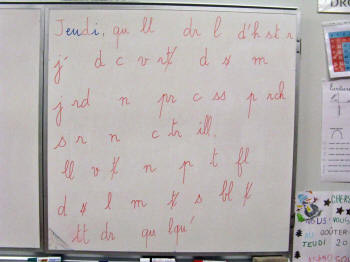 Jeudi, qu ll dr l d'h st r
j' d c v rt d s m
j rd n pr c ss p rch
s r n c tr ill.
ll v t n p t fl
d s l m t s bl t
tt dr qu lqu'
CHER
NOUS VOUS
GOÛTER
JEUDI 20